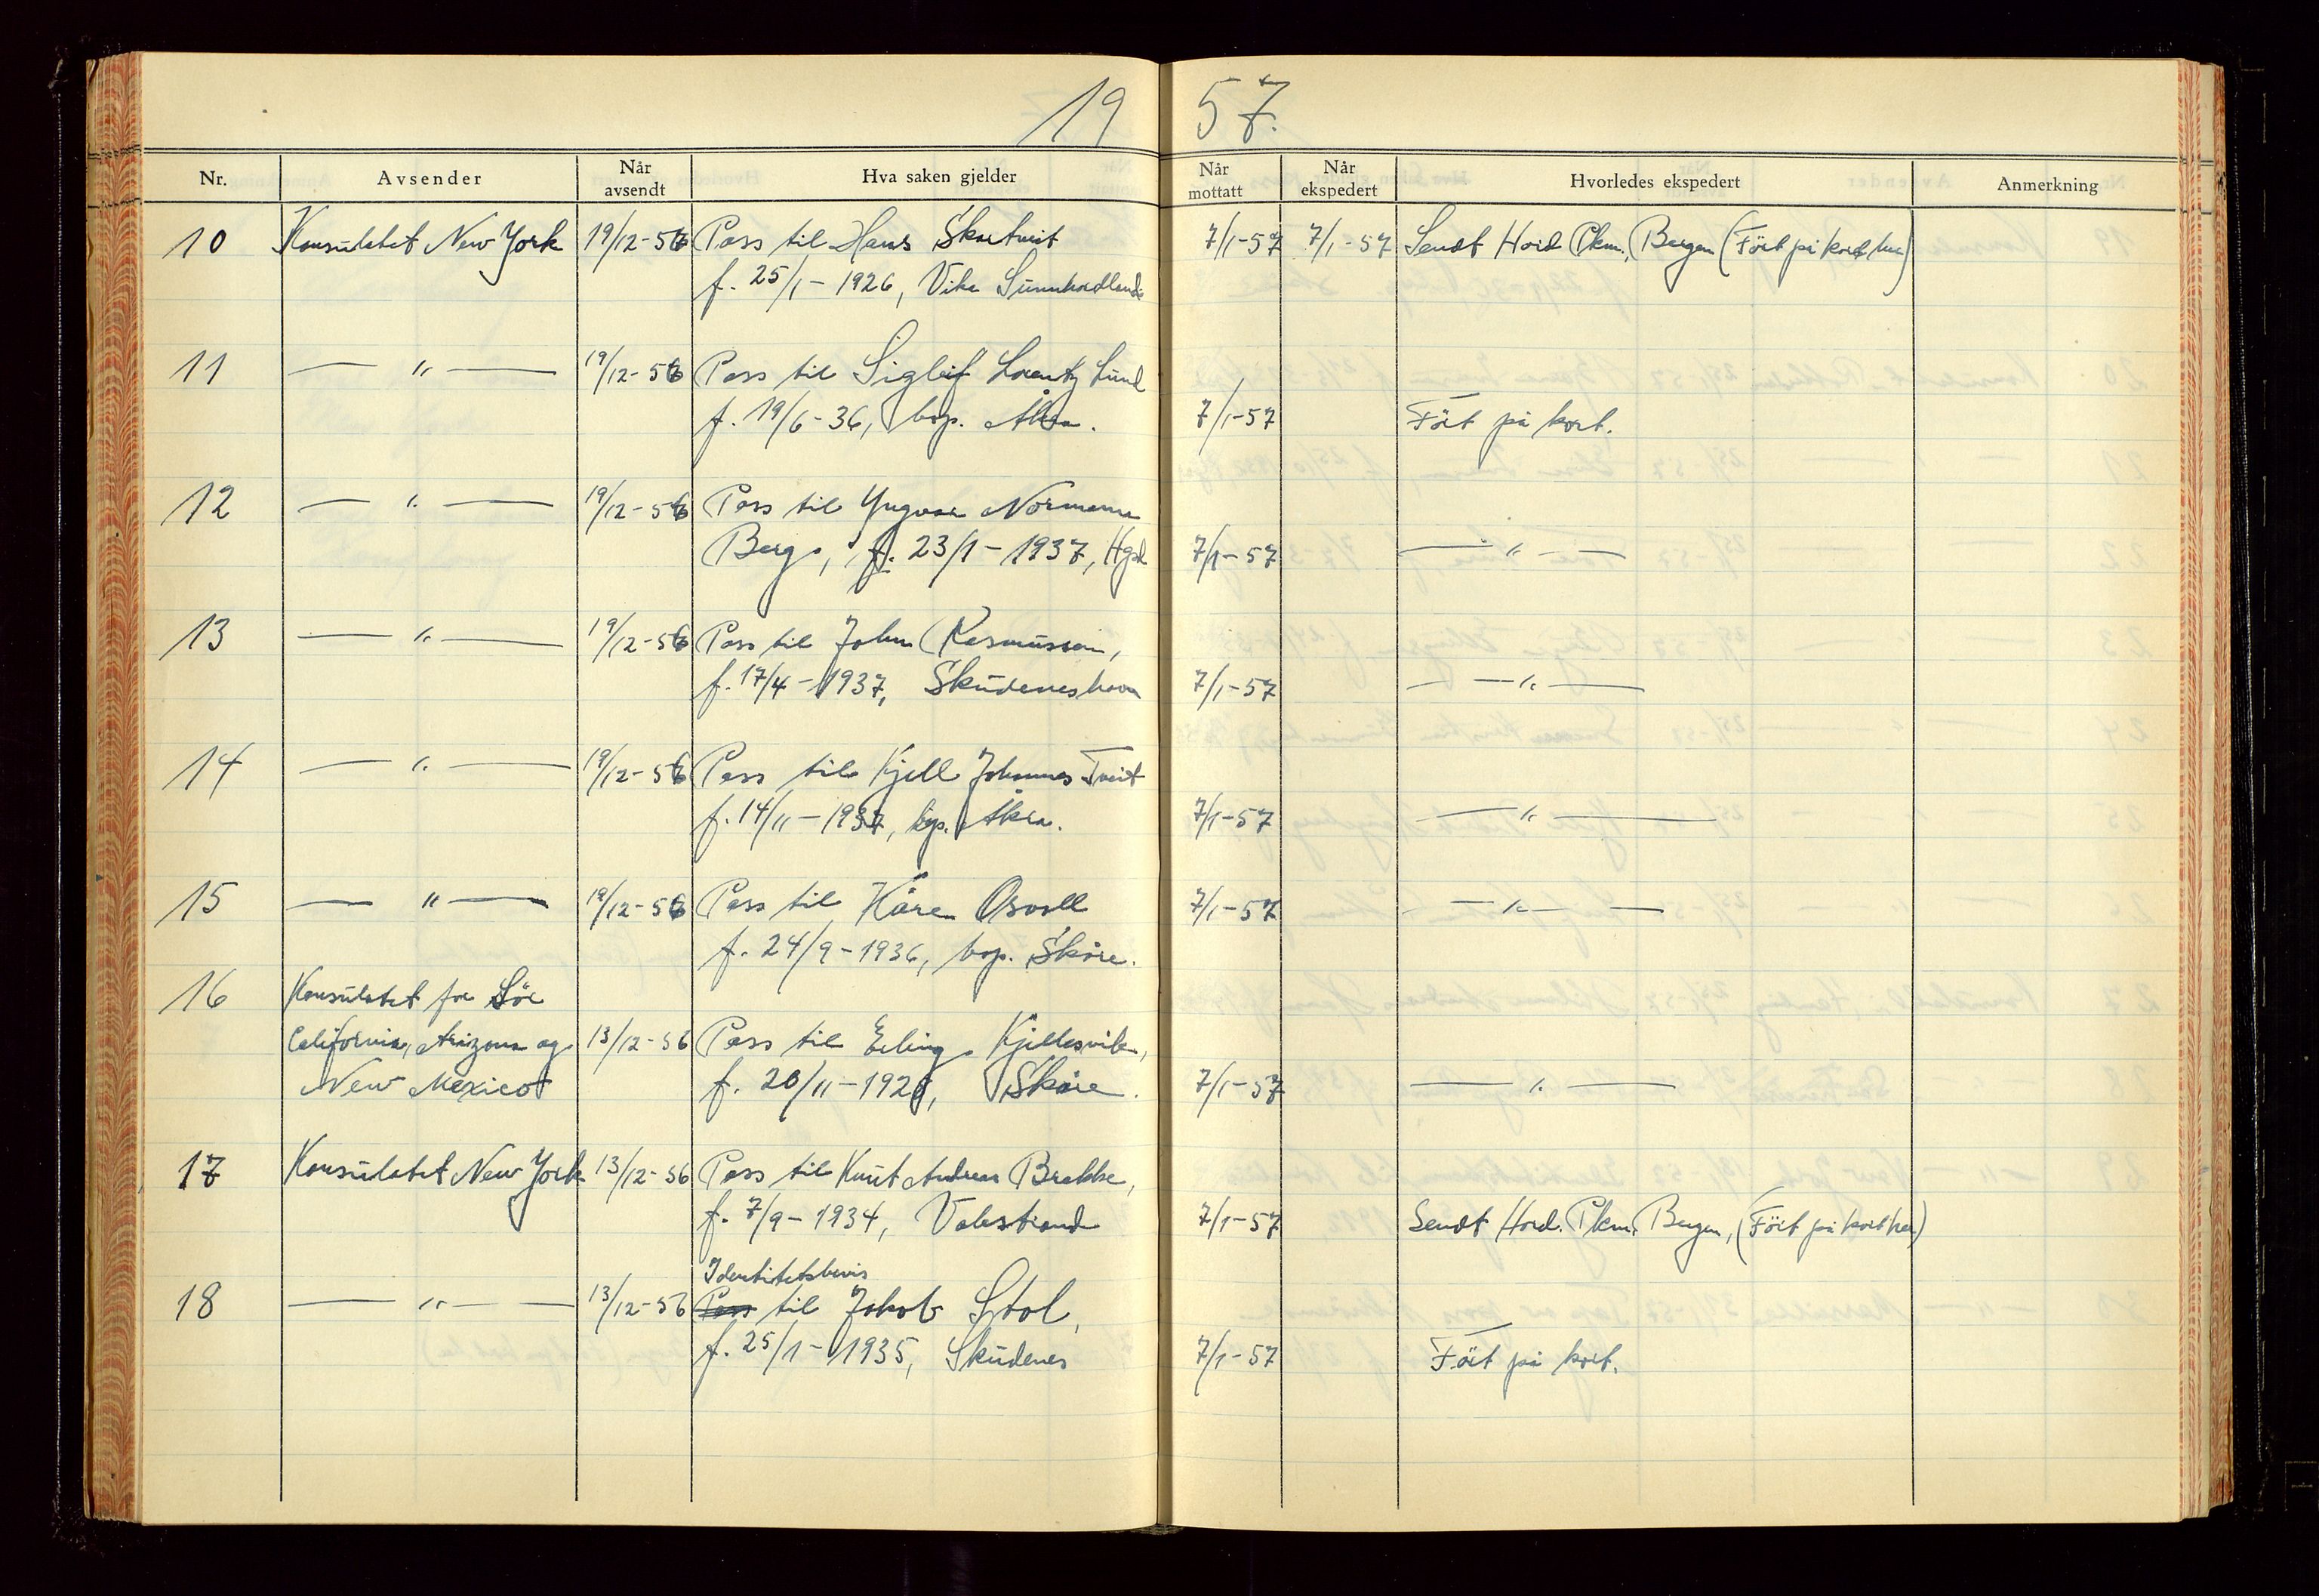 19 57.
Nr. Avsender Når avsendt Hva saken gjelder Når mottatt Når ekspedert Hvorledes ekspedert Anmerkning
10 Konsulatet New York 19/12-56 Pass til Hans 7/1-57 7/1-57 Sendt Hord Pkm., Bergen (Ført på kort her)
f. 25/1-1926, Vika Sunnhordland
11 — " — 19/12-56 Pass til Sigleif Lorentz Lund
f. 19/6-36, bop. Åkra. 7/1-57 Ført på kort.
12 — " — 19/12-56 Pass til Yngvar Normann
Berg, f. 23/1-1937, Hgsd 7/1-57 — " —
13 — " — 19/12-56 Pass til John Rasmussen,
f. 17/4-1937, Skudeneshavn 7/1-57 — " —
14 — " — 19/12-56 Pass til Kjell Johannes Tveit
f. 14/11-1937, bop. Åkra. 7/1-57 — " —
15 — " — 19/12-56 Pass til Kåre Osvoll 7/1-57 — " —
f. 24/9-1936, bop. Skåre.
16 Konsulatet for Sör
California, Arizona og 13/12-56 Pass til Erling Kjellesvik,
New Mexico f. 20/11-1926, Skåre. 7/1-57 — " —
17 Konsulatet New York 13/12-56 Pass til Knut Andreas Brekke,
f. 7/9-1934, Valestrand 7/1-57 Sendt Hord. Pkm. Bergen, (Ført på kort her)
Identitetsbevis
18 — " — 13/12-56 Pass til Jakob Stol,
f. 25/1-1935, Skudenes 7/1-57 Ført på kort.